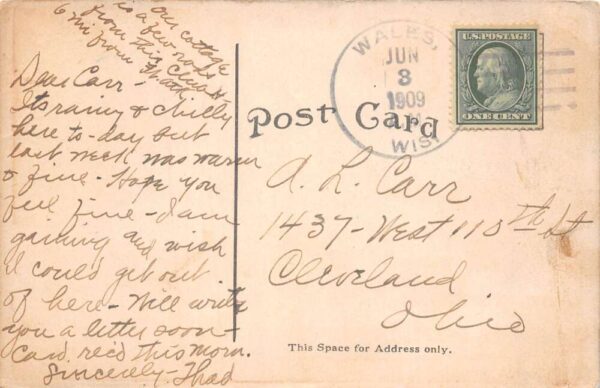 Our cottage
is a few rods
from this Church
6 mi from
Dear Carr -
Its rainy & chilly
here to-day but
last week was warm
& fine - Hope you
feel fine - I am
gaining and wish
I could get out
of here - Will write
you a letter soon -
Card rec'd this morn.
Sincerely - Thad
Post Card
WALES,
JUN
3
1909
WIS.
U.S. POSTAGE
ONE CENT
A. L. Carr
1437 - West 110th St
Cleveland
Ohio
This Space for Address only.